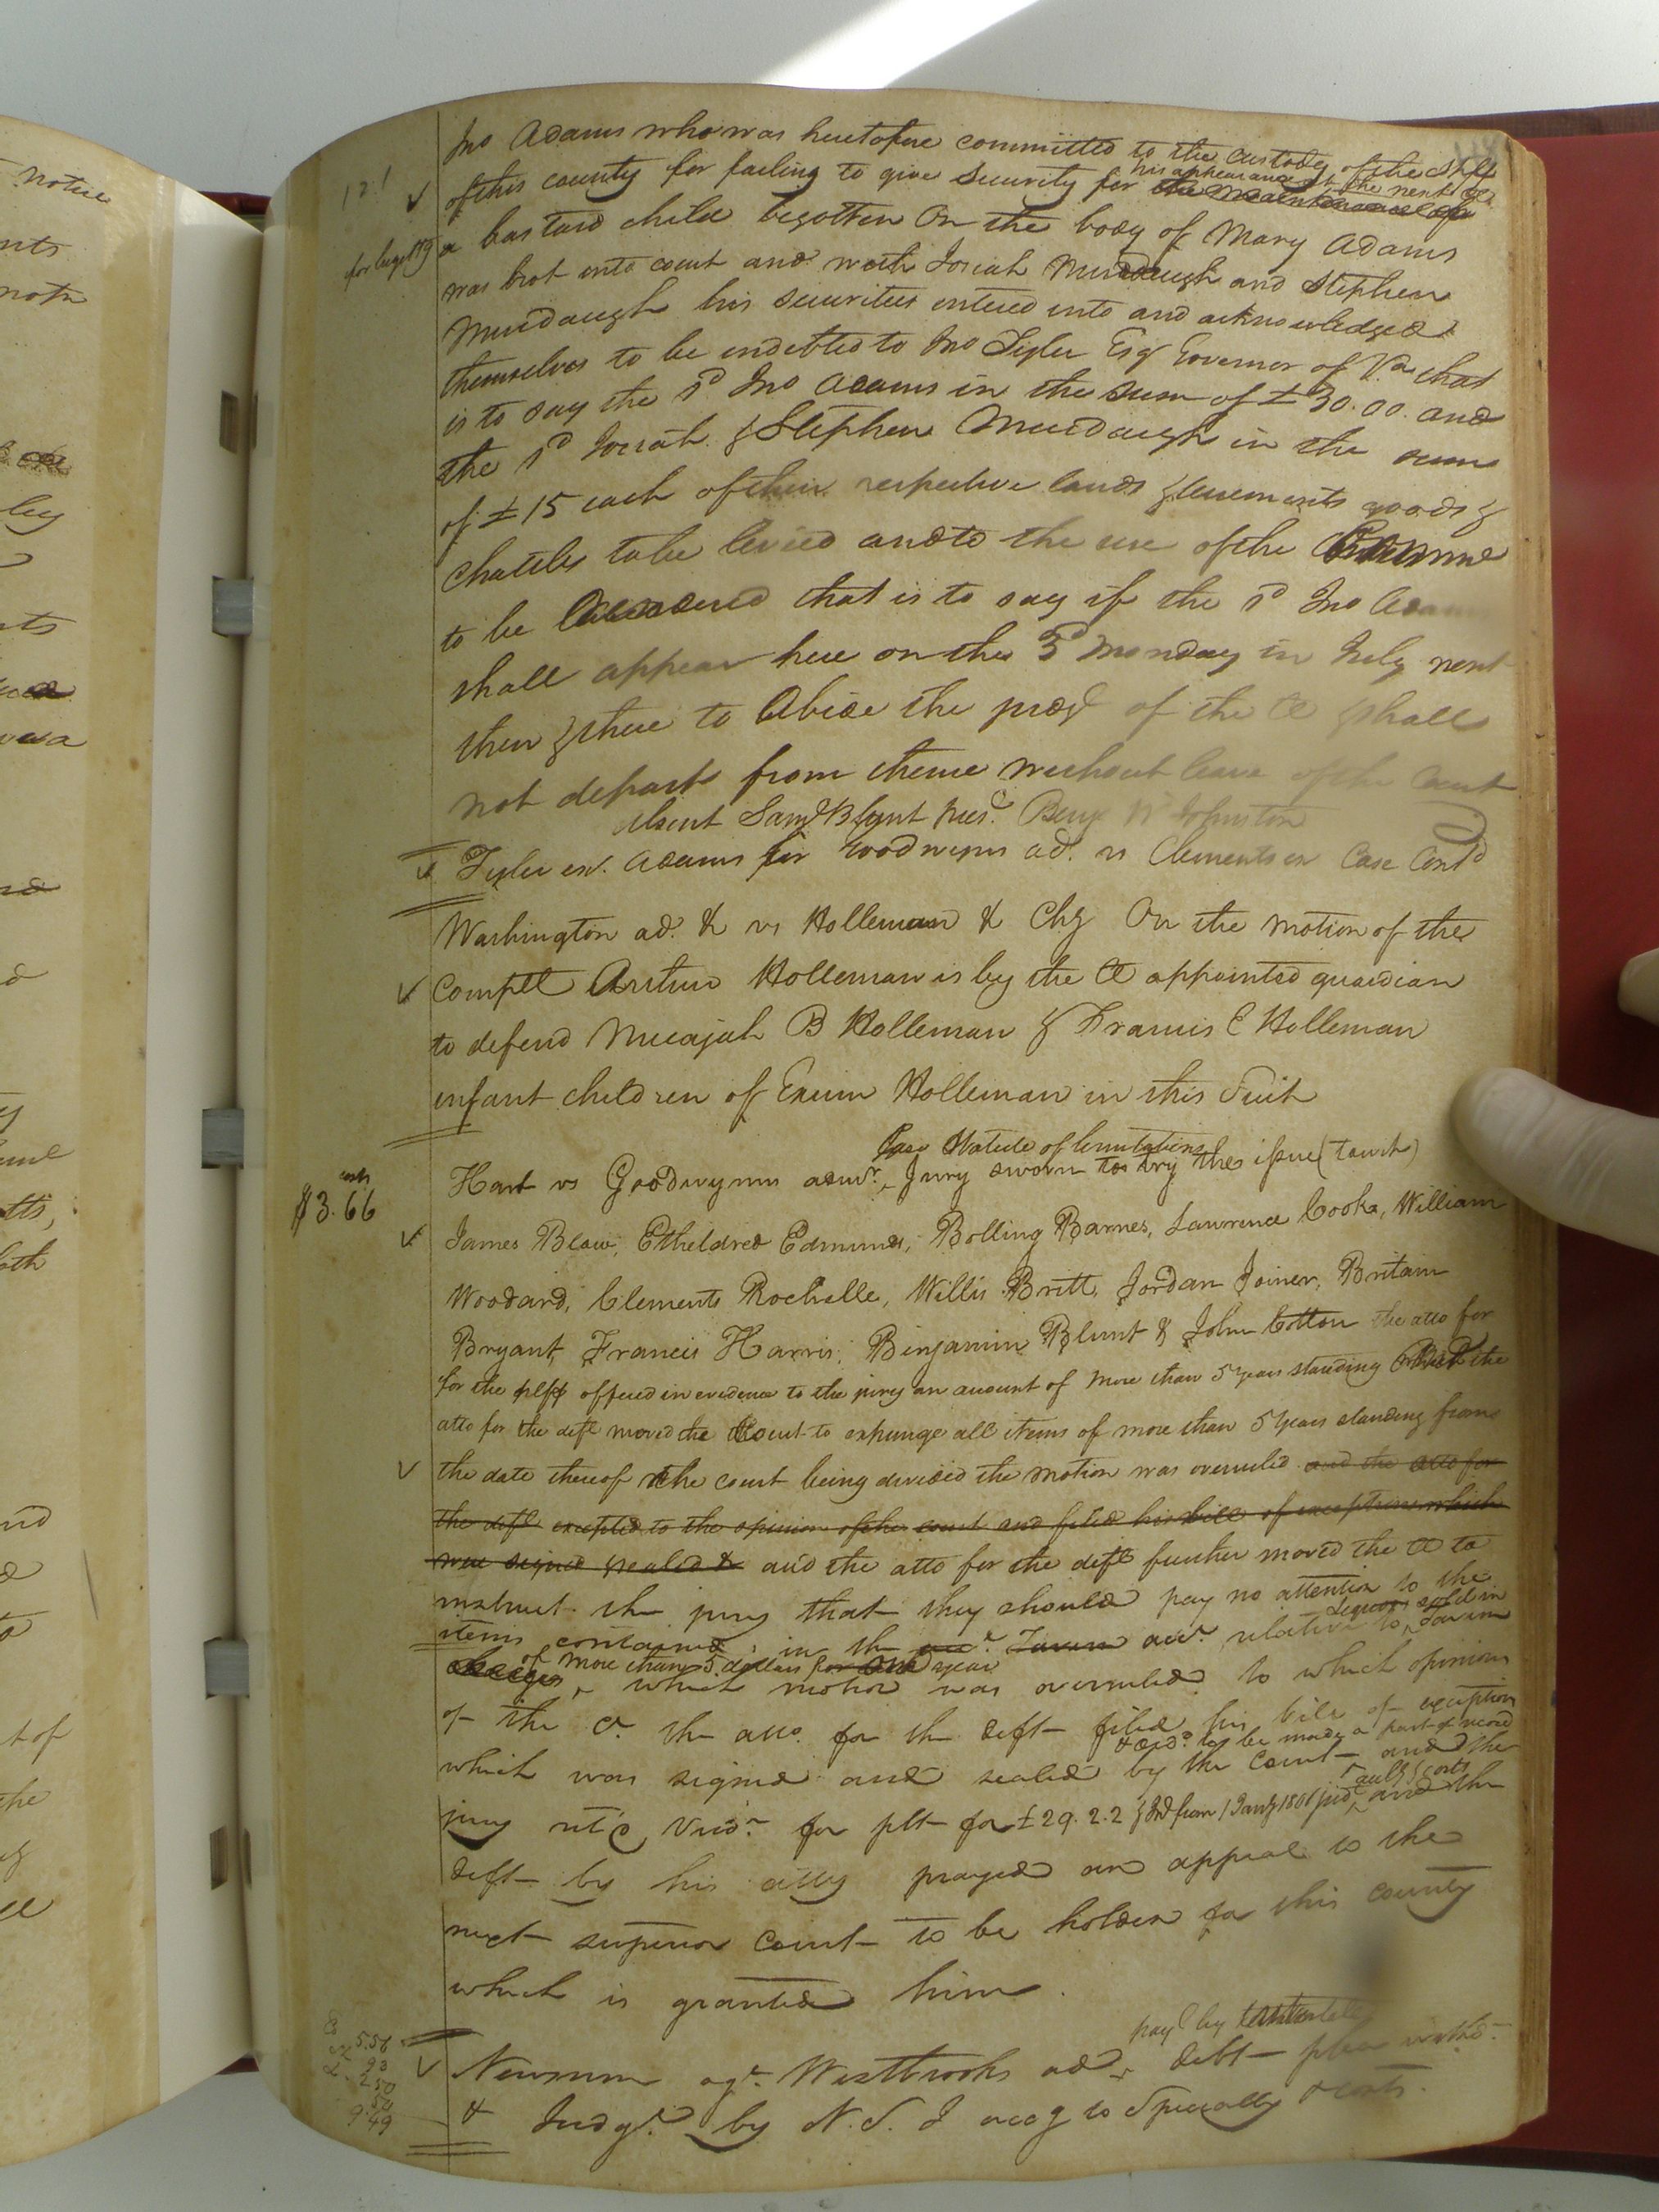 Jno Adams who was heretofore committed to the custody of the Shff
of this county for failing to give security for his appearance at the next
the maintenance of
a bastard child begotten on the body of Mary Adams
was brot into court and with Josiah Murdaugh and Stephen
Murdaugh his securities entered into and acknowledged
themselves to be indebted to Jno Tyler Esqr Governor of Va that
is to say the sd Jno Adams in the sum of £30.00. and
the sd Josiah & Stephen Murdaugh in the sum
of £15 each of their respective lands & tenements goods &
chattles to be levied and to the use of the
to be that is to say if the sd Jno Adams
shall appear here on the 3d Monday in July next
then & there to abide the of the Ct & shall
not depart from thence without leave of the Court
absent Saml Blunt pres. Benj Johnston
Tyler ex. Adams for Goodwynn ad. vs Clements ex Case Contd
Washington ad. & vs Holleman & Chy On the motion of the
Complt Arthur Holleman is by the Ct appointed guardian
to defend Mecajah B Holleman & Francis E Holleman
infant children of Exum Holleman in this Suit
Statute of limitations
Hart vs Goodwynn Jury sworn to try the issue (towit)
costs
$3.66
James Blow, Etheldred Edmunds, Bolling Barnes, Lawrence Cooke, William
Woodard, Clements Rochelle, Willis Britt, Jordan Joiner, Britain
Bryant, Francis Harris, Binjamin Blunt & John Cotton the atto for
for the pltf offered in evidence to the jury an account of more than 5 years standing the
atto for the deft moved the Court to expunge all items of more than 5 years standing from
the date thereof the court being divided the motion was overruled and the atto for
the deft excepted to the opinion of the court and filed his bill of exceptions which
was signed sealed & and the atto for the deft further moved the Ct to
instruct the jury that they should pay no attention to the
liquors sold in
items contained in the acct. Tavern acct. relative to Tavern
of more than 5 dollars for one year
charges, which motion was overruled to which opinion
of the Ct. the atto. for the deft filed his bill of exception
& ord. to be made a part of record
which was signed and sealed by the Court and the
jury retd Verd. for plt for £29.2.2 & Int from 1 Jany 1801 and the
deft by his atty prayed an appeal to the
next superior Court to be holden for this county
which is granted him.
5.56
93
2.50
.50
9.49
Newsum agt. Westbrooks ad. debt plea withd.
& Judgt. by N. S. I accg to Specialty & costs.